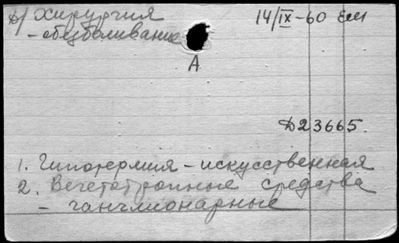 А) Хирургия 14/IX-60
- обезболивание
А
D23665.
1. Гипотермия - искусственная
2. Вегетотропные средства
- ганглионарные